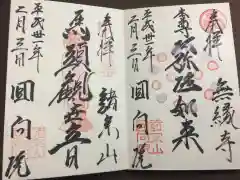 奉拝
無縁寺
弥陀如来
平成卅一年
二月三日
回向院
奉拝
諸宗山
馬頭観世音
平成卅一年
二月三日
回向院